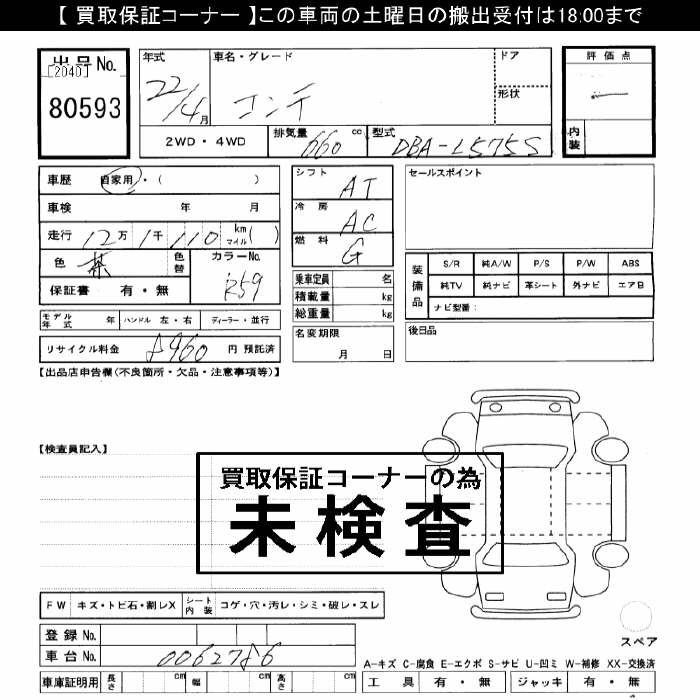 【 買取保証コーナー 】この車両の土曜日の搬出受付は18:00まで
出品No.
[2040]
80593
年式
22/4月
車名・グレード
コンテ
ドア
形状
2WD・4WD
排気量
660 cc
型式
DBA-L575S
評価点
内装
車歴 自家用・( )
車検 年 月
走行 12万 1千 110 km マイル ( )
色 茶
色替
カラーNo.
R59
保証書 有・無
シフト AT
冷房 AC
燃料 G
乗車定員 名
積載量 kg
総重量 kg
セールスポイント
装備品
S/R 純A/W P/S P/W ABS
純TV 純ナビ 革シート 外ナビ エアB
ナビ型番:
モデル年式 年 ハンドル 左・右 ディーラー・並行
名変期限
月 日
後日品
リサイクル料金 8960 円 預託済
【出品店申告欄(不良箇所・欠品・注意事項等)】
【検査員記入】
買取保証コーナーの為
未検査
FW キズ・トビ石・割レX
シート内装 コゲ・穴・汚レ・シミ・破レ・スレ
登録 No.
車台 No. 0062786
車庫証明用 長さ cm 幅 cm 高さ cm
スペア
A-キズ C-腐食 E-エクボ S-サビ U-凹ミ W-補修 XX-交換済
工具 有・無 ジャッキ 有・無